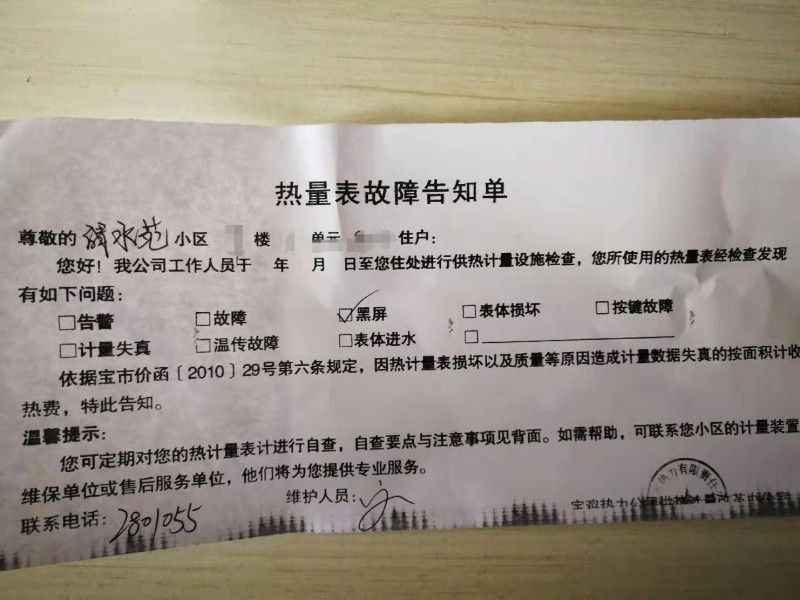 热量表故障告知单
尊敬的 泽水苑 小区 楼 单元 住户：
您好！我公司工作人员于 年 月 日至您住处进行供热计量设施检查，您所使用的热量表经检查发现
有如下问题：
□告警 □故障 ☑黑屏 □表体损坏 □按键故障
□计量失真 □温传故障 □表体进水 □
依据宝市价函〔2010〕29号第六条规定，因热计量表损坏以及质量等原因造成计量数据失真的按面积计收
热费，特此告知。
温馨提示：
您可定期对您的热计量表计进行自查，自查要点与注意事项见背面。如需帮助，可联系您小区的计量装置
维保单位或售后服务单位，他们将为您提供专业服务。
维护人员：
联系电话：2801055
热力有限责任
宝鸡热力公司供热计量改革办公室